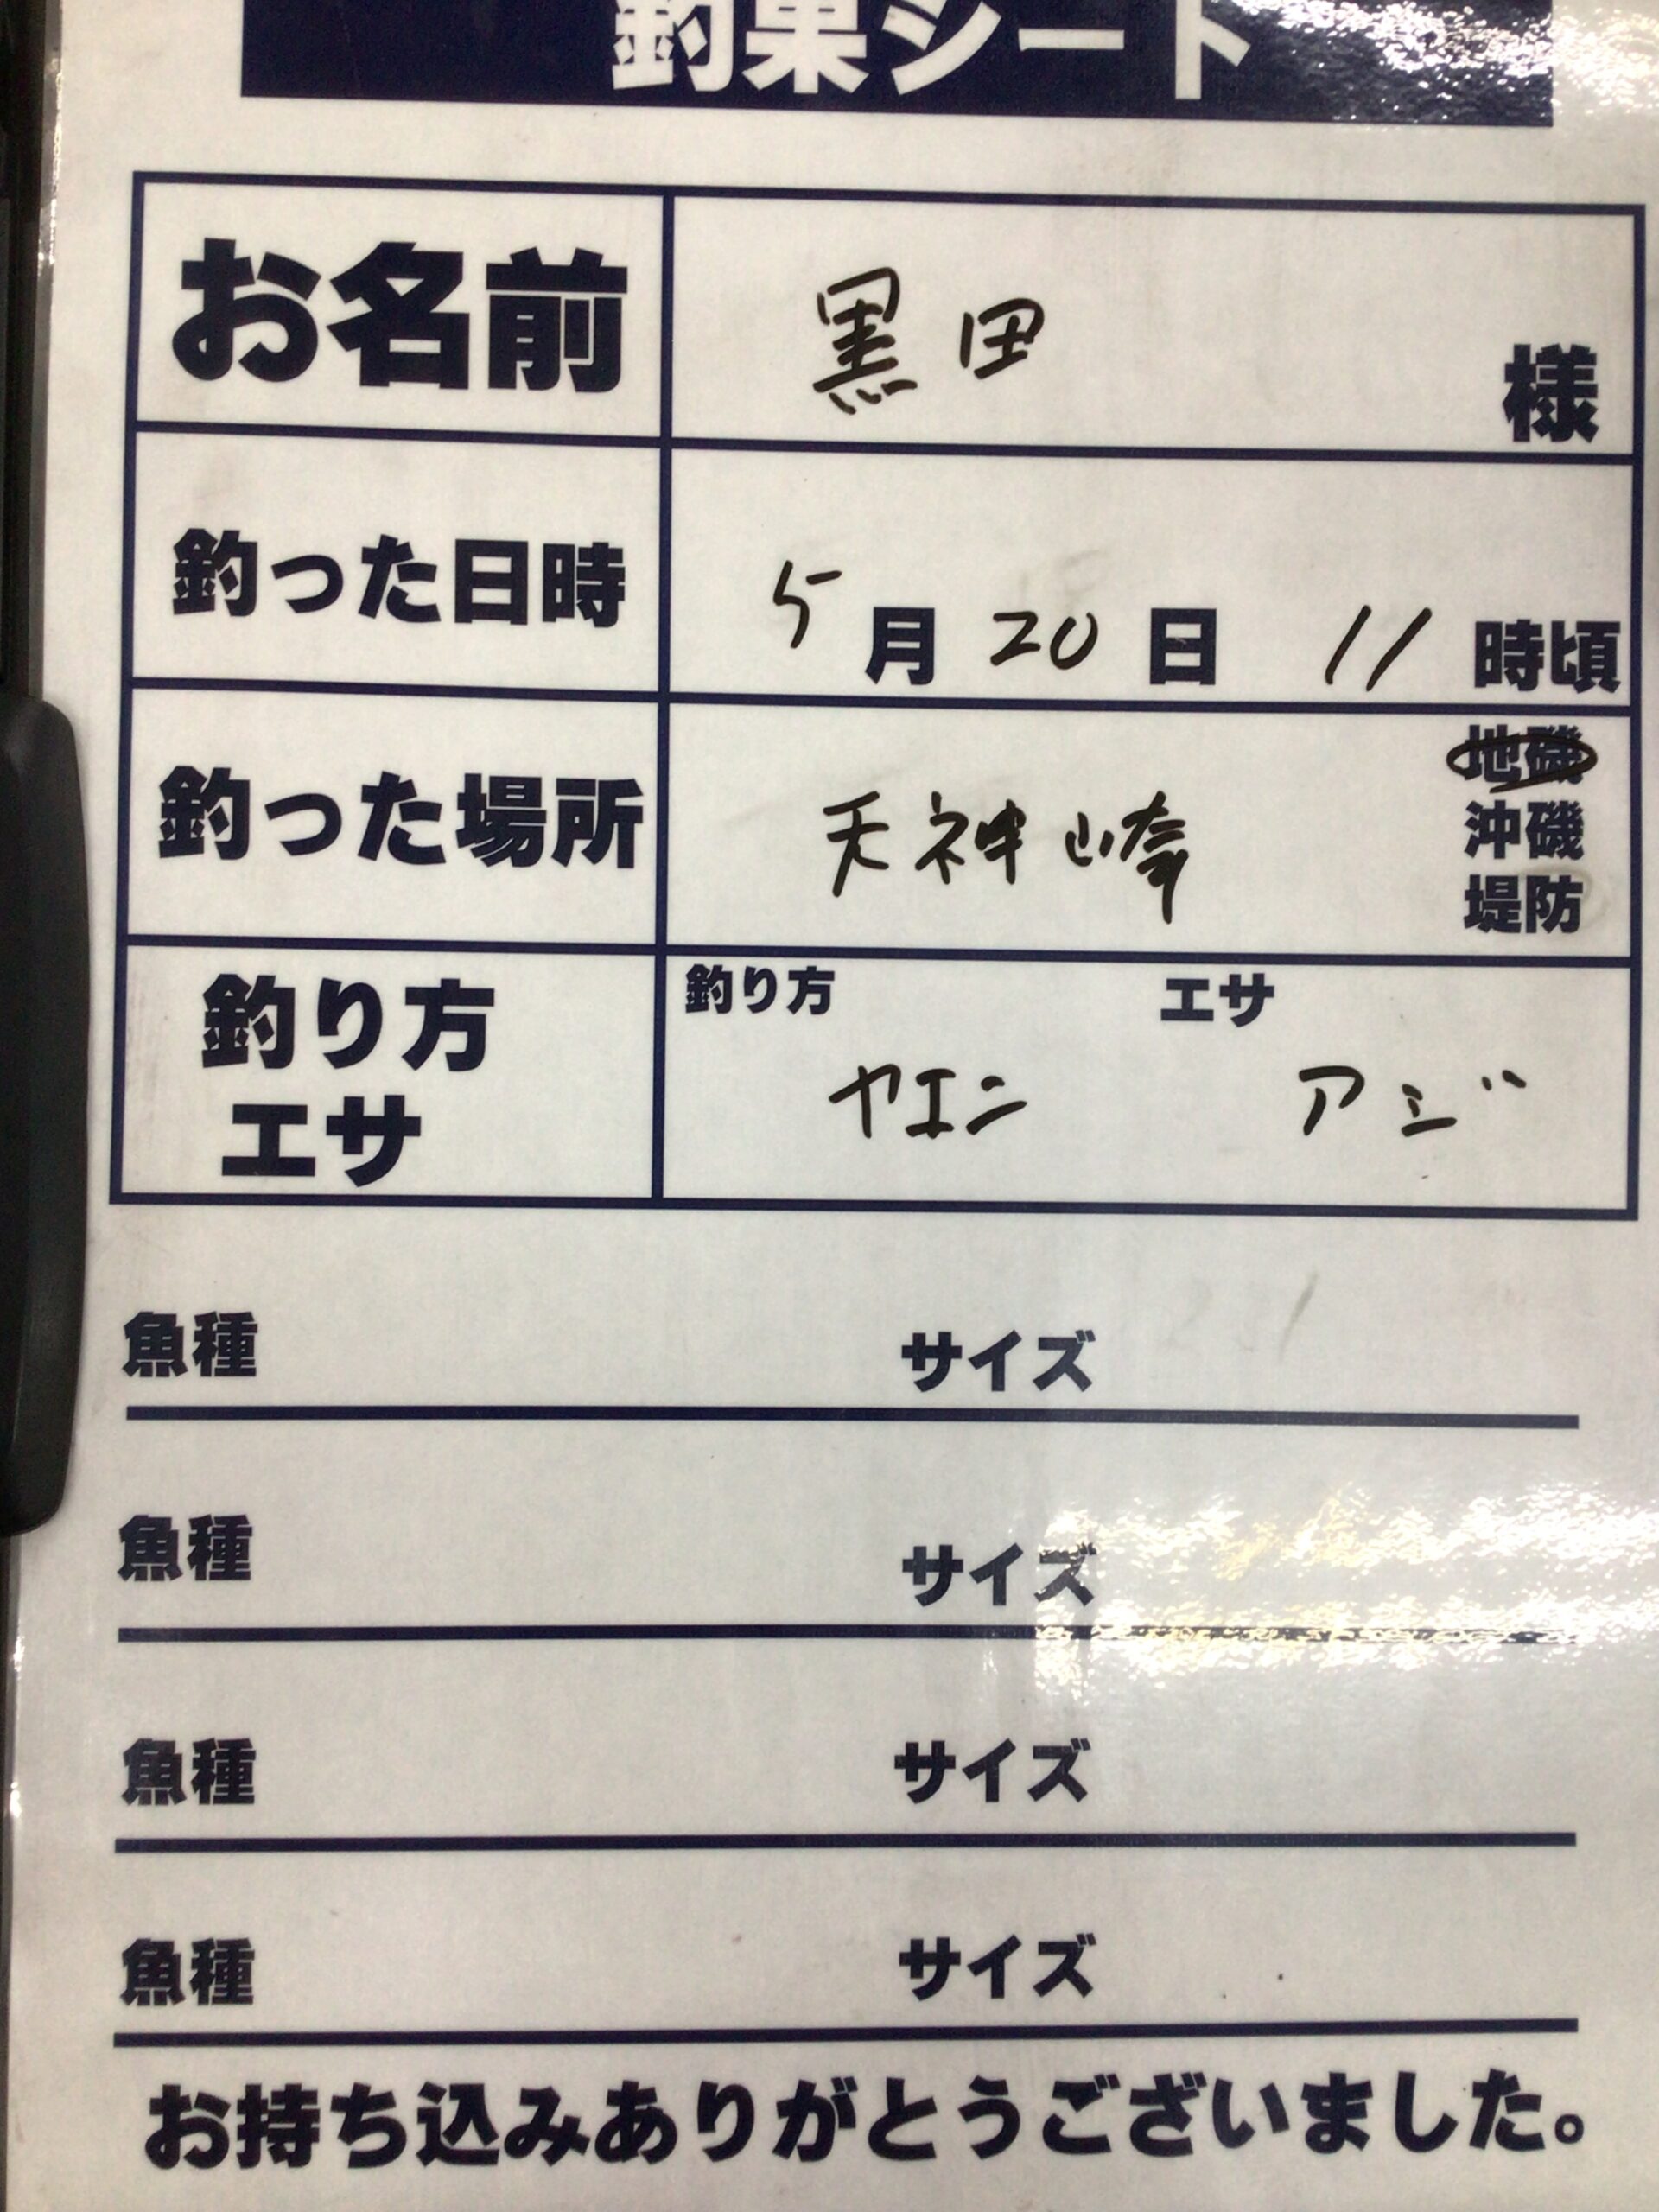 釣果シート
お名前 黒田 様
釣った日時 5月20日 11時頃
釣った場所 天神崎 地磯
沖磯
堤防
釣り方 エサ
釣り方 ヤエン エサ アジ
魚種 サイズ
魚種 サイズ
魚種 サイズ
魚種 サイズ
お持ち込みありがとうございました。